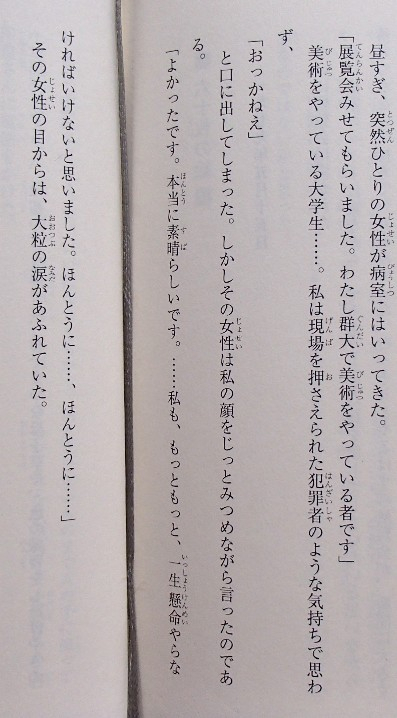 昼すぎ、突然ひとりの女性が病室にはいってきた。
「展覧会みせてもらいました。わたし群大で美術をやっている者です」
美術をやっている大学生……。私は現場を押さえられた犯罪者のような気持ちで思わ
ず、
「おっかねえ」
と口に出してしまった。しかしその女性は私の顔をじっとみつめながら言ったのであ
る。
「よかったです。本当に素晴らしいです。……私も、もっともっと、一生懸命やらな
ければいけないと思いました。ほんとうに……、ほんとうに……」
その女性の目からは、大粒の涙があふれていた。